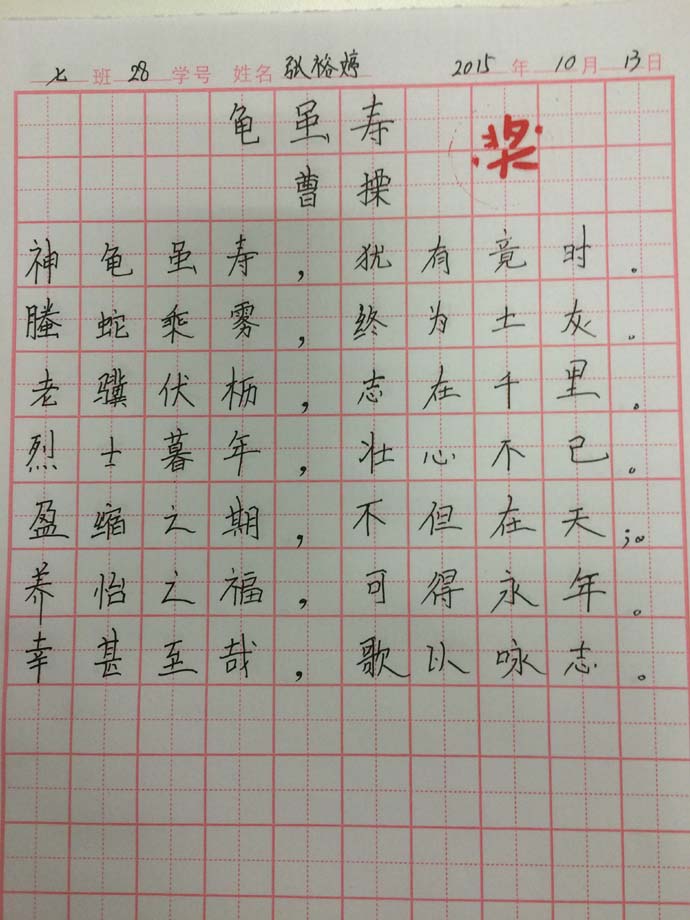 七班 28 学号 姓名 张裕婷 2015年10月13日
龟虽寿
奖
曹操
神龟虽寿,犹有竟时。
螣蛇乘雾,终为土灰。
老骥伏枥,志在千里。
烈士暮年,壮心不已。
盈缩之期,不但在天;。
养怡之福,可得永年。
幸甚至哉,歌以咏志。